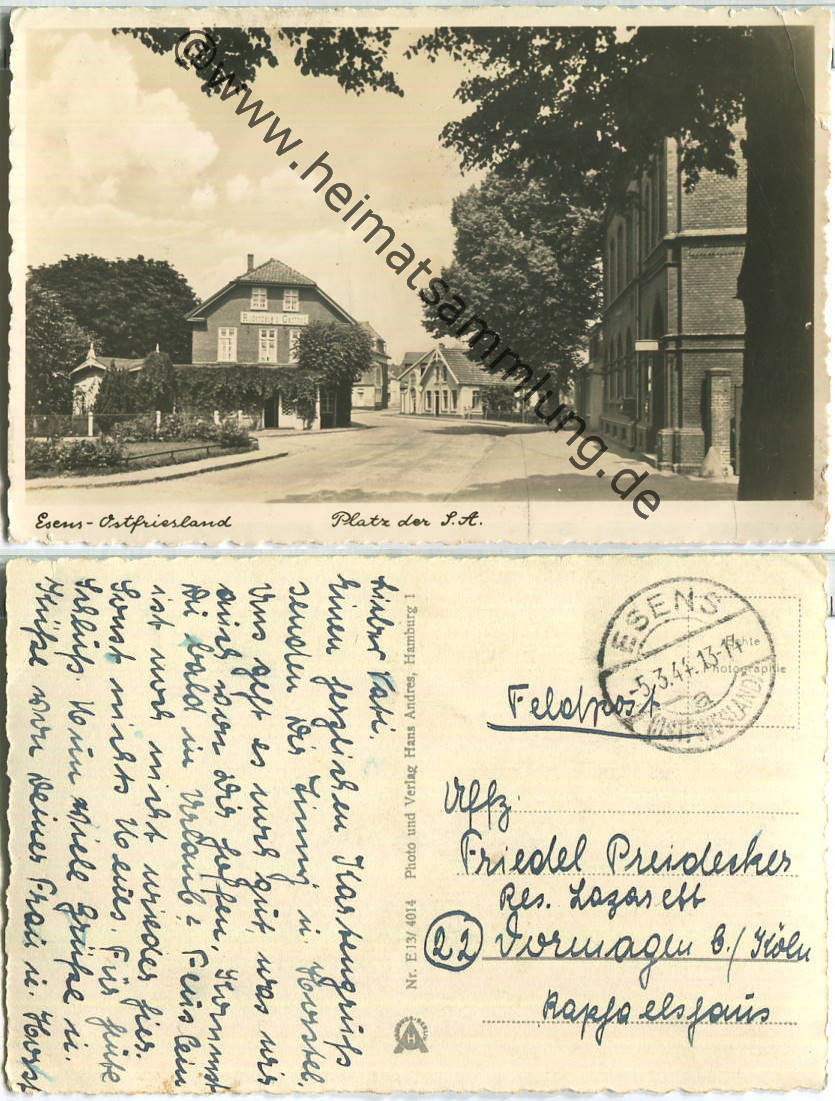 @www.heimatsammlung.de
Esens-Ostfriesland Platz der S.A.
Lieber Vati.
Einen herzlichen Kartengruß
senden Dir Timmi u. Horstel.
Uns geht es noch gut, was wir
auch von Dir hoffen. Kommst
Du bald in Urlaub?
ist noch nicht wieder hier.
Sonst nichts Neues. Für heute
Schluß. Nun viele Grüße u.
Küße von Deiner Frau u. Horst
Nr. E 13/ 4014 Photo und Verlag Hans Andres, Hamburg 1
Echte
Photographie
ESENS
-5.3.44.13-14
a
(OSTFRIESLAND)
Feldpost
Uffz.
Friedel Preidecker
Res. Lazarett
22 Dormagen b./Köln
Raphaelshaus